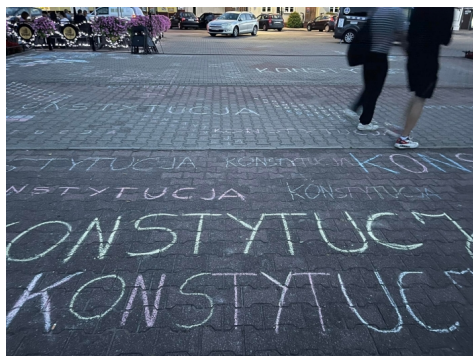 KONSTYTU
KONSTYTUCJA
KONSTYTUCJA
STYTUCJA KONSTYTUCJA KONS
KONSTYTUCJA KONSTYTUCJA
KONSTYTUCJ
KONSTYTUC